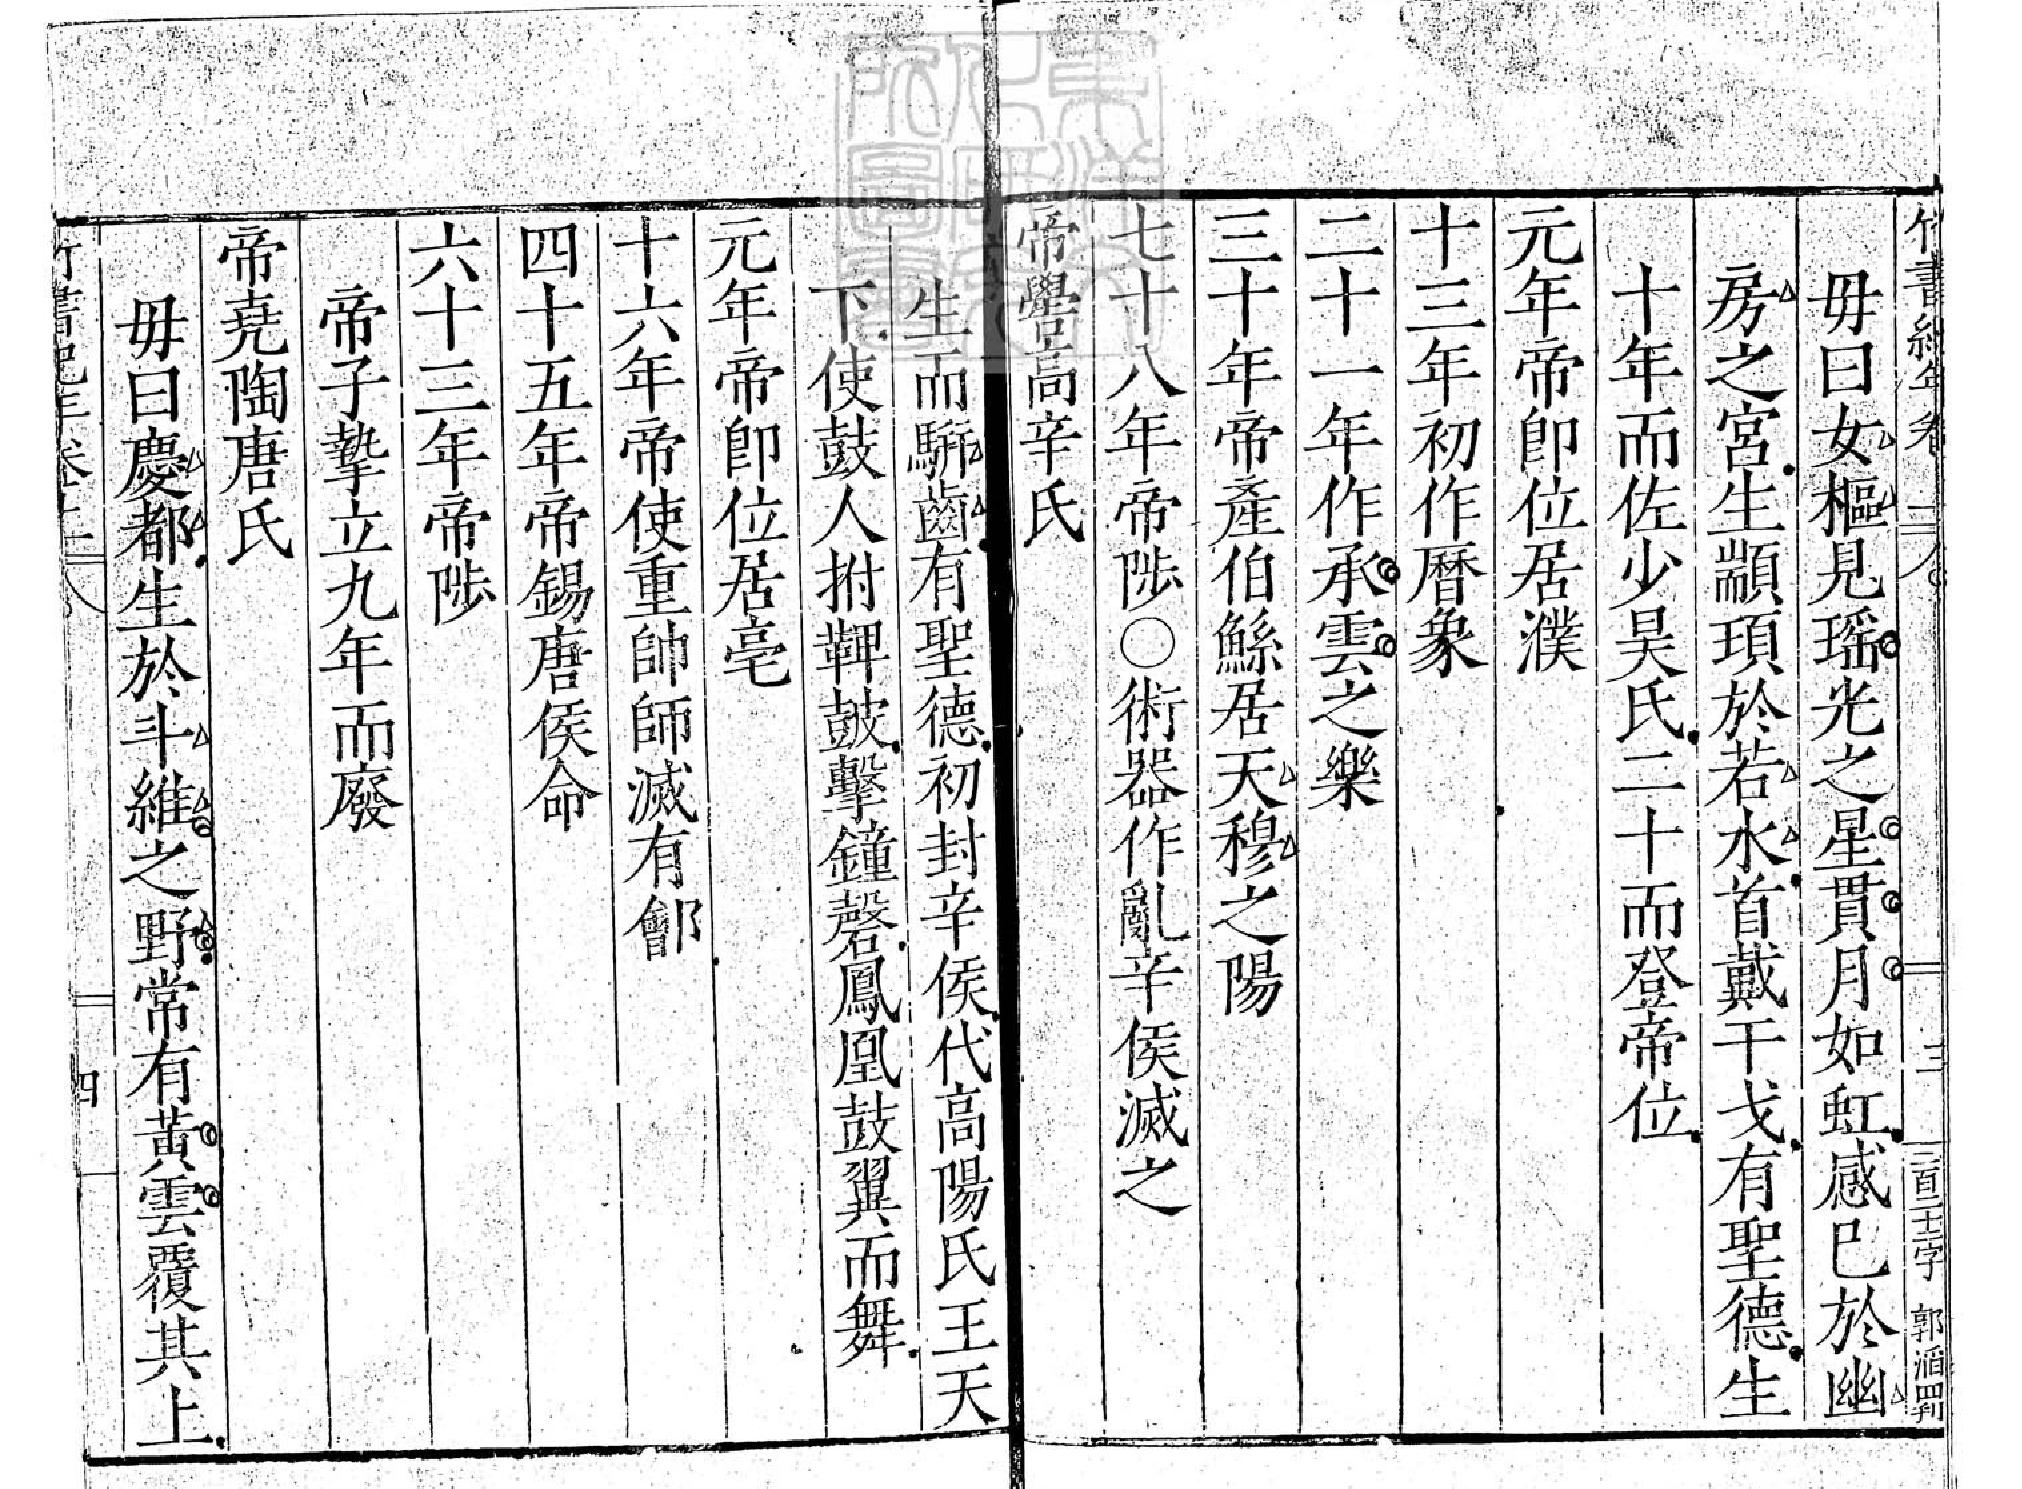 竹書紀年卷上
三
毋曰女樞見瑶光之星貫月如虹感巳於幽
房之宮生顓頊於若水首戴干戈有聖德生
十年而佐少昊氏二十而登帝位
元年帝卽位居濮
十三年初作曆象
二十一年作承雲之樂
三十年帝產伯鯀居天穆之陽
七十八年帝陟○術器作亂辛侯滅之
帝嚳高辛氏
生而騈齒有聖德初封辛侯代高陽氏王天
下使鼓人拊鞞鼓擊鐘磬鳳凰鼓翼而舞
元年帝卽位居亳
十六年帝使重帥師滅有鄶
四十五年帝錫唐侯命
六十三年帝陟
帝子摯立九年而廢
帝堯陶唐氏
毋曰慶都生於斗維之野常有黃雲覆其上
竹書紀年卷上
四